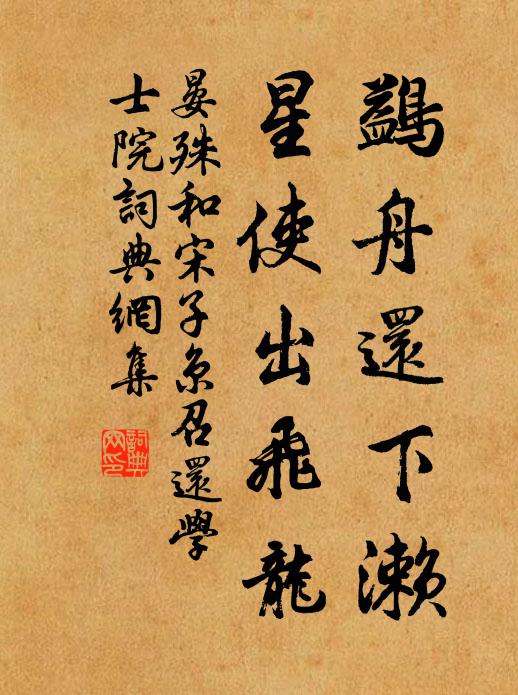 鷁舟還下瀨
星使出飛龍
晏殊和宋子京召還學
士院詞典網集
詞典
网印